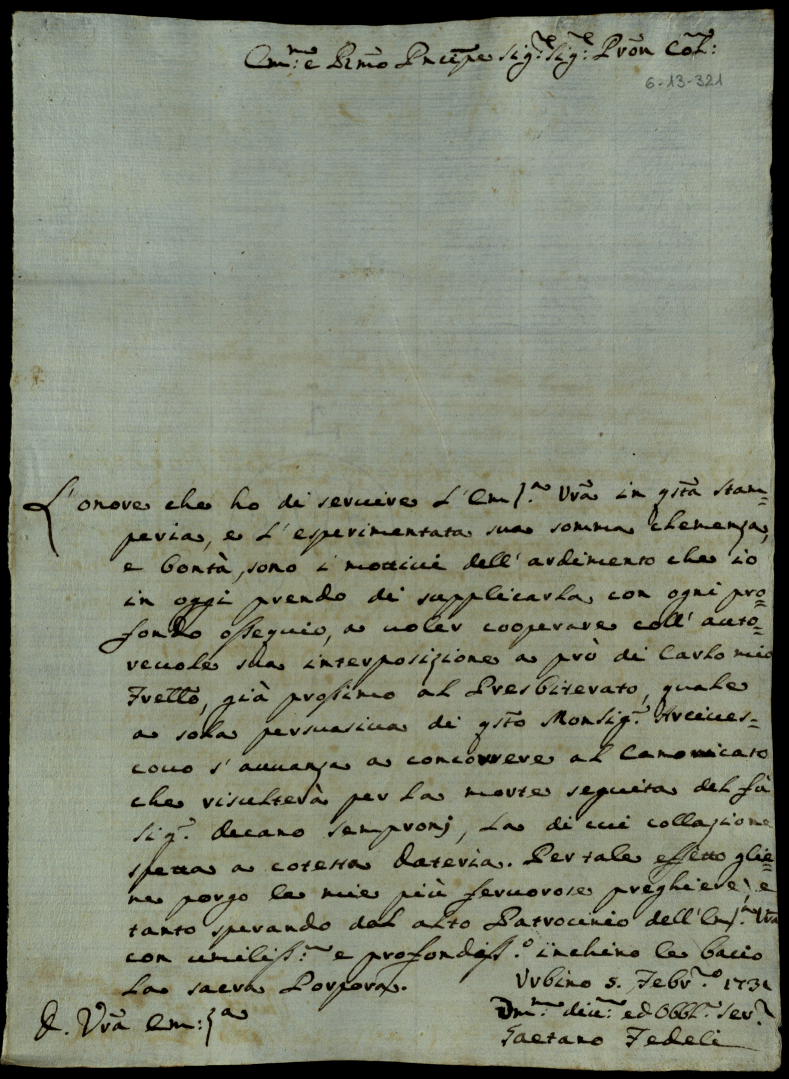 Em:mo e Rmo Pncipe Sig:re Sig:re Pron Col:
6-13-321
L'onore che ho di seruire l'Em:za Vra in qsta stam=
peria, e l'esperimentata sua somma clemenza,
e bontà, sono i mottiui dell'ardimento che io
in oggi prendo di supplicarla con ogni pro=
fondo ossequio, a uoler cooperare coll'auto=
reuole sua interposizione a prò di Carlo mio
Frello, già prossimo al Presbiterato, quale
a sola persuasiua di qsto Monsig.r Arciues=
couo s'auuanza a concorrere al Canonicato
che risulterà per la morte seguita del fù
Sig.r Decano Sempronj, la di cui collazione
spetta a cotesta Dateria. Per tale effetto glie=
ne porgo le mie più feruorose preghiere, e
tanto sperando dal alto Patrocinio dell'Em:za Vra
con umiliss:mo e profondiss.o inchino le bacio
la sacra Porpora. Vrbino 5. Febr.o 1731
D. Vra Em:za
Vm:mo diu:mo ed Obbl:mo Ser.re
Gaetano Fedeli